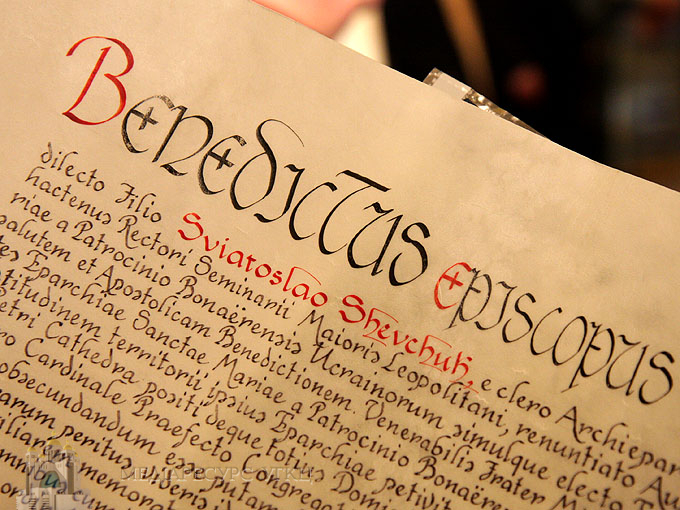 Benedictus Episcopus
dilecto Filio Sviatoslao Shevchuk, e clero Archiepar
hactenus Rectori Seminarii Maioris Leopolitani, renuntiato Au
riae a Patrocinio Bonaërensis Ucrainorum simulque electo
salutem et Apostolicam Benedictionem. Venerabilis Frater
tes Eparchiae Sanctae Mariae a Patrocinio Bonaëren
titudinem territorii ipsius Eparchiae petivit
etri Cathedra positi deque totius Domi
ro Cardinale Praefecto Congreg
obsecundandum esse putam
arum peritus, veris
memorat
mnibus cum
МЕДІАРЕСУРС УГКЦ